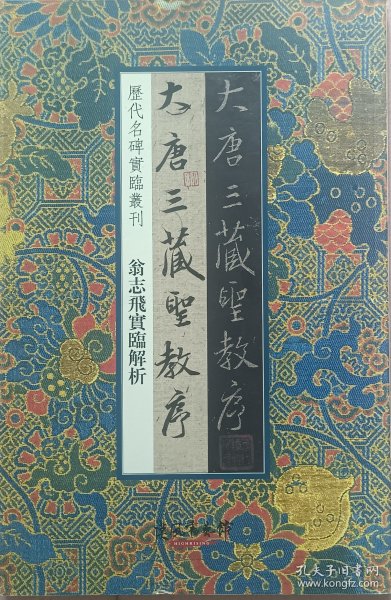 大唐三藏聖教序
大唐三藏聖教序
歷代名碑實臨叢刊
翁志飛實臨解析
HIGHRISING
孔夫子旧书网
www.kongfz.com